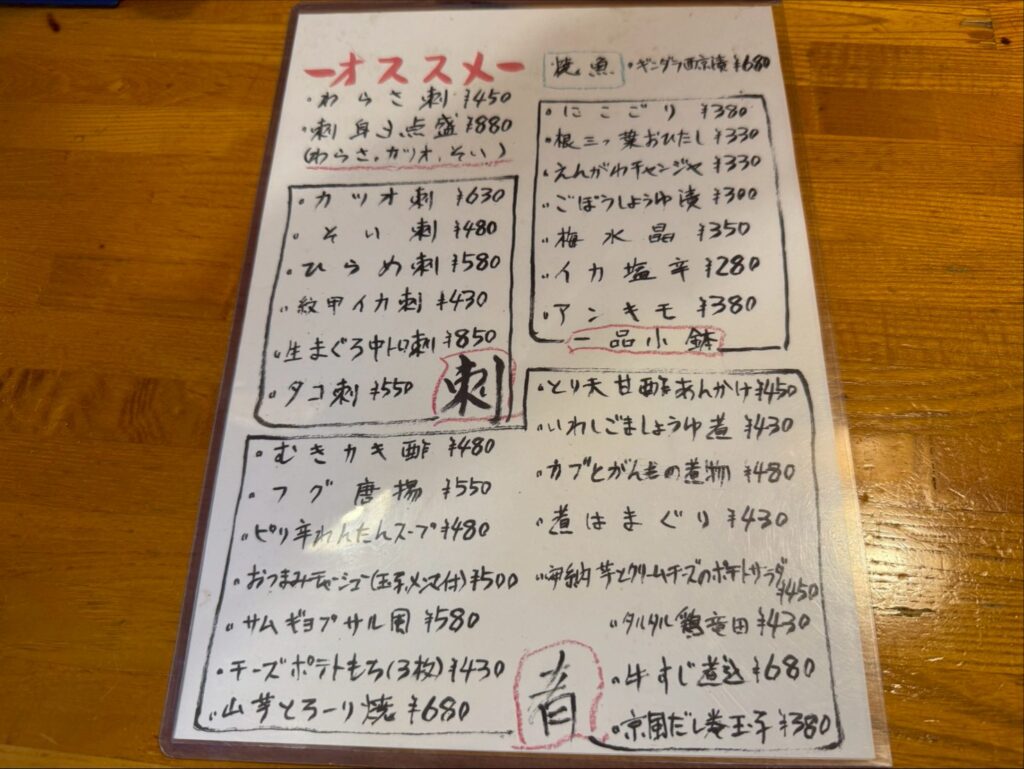 ーオススメー
・わらさ刺 ¥450
・刺身3点盛 ¥880
(わらさ、カツオ、そい)
・カツオ刺 ¥630
・そい刺 ¥480
・ひらめ刺 ¥580
・紋甲イカ刺 ¥430
・生まぐろ中トロ刺 ¥850
・タコ刺 ¥550
刺
焼魚 ・ギンダラ西京漬 ¥680
・にこごり ¥380
・根三ッ葉おひたし ¥330
・えんがわチャンジャ ¥330
・ごぼうしょうゆ漬 ¥300
・梅水晶 ¥350
・イカ塩辛 ¥280
・アンキモ ¥380
一品小鉢
・むきカキ酢 ¥480
・フグ唐揚 ¥550
・ピリ辛わんたんスープ ¥480
・おつまみチャーシュー(玉子、メンマ付) ¥500
・サムギョプサル風 ¥580
・チーズポテトもち(3枚) ¥430
・山芋とろーり焼 ¥680
・とり天甘酢あんかけ ¥450
・いわしごましょうゆ煮 ¥430
・カブとがんもの煮物 ¥480
・煮はまぐり ¥430
・安納芋とクリームチーズのポテトサラダ ¥450
・タルタル鶏竜田 ¥430
・牛すじ煮込 ¥680
・京風だし巻玉子 ¥380